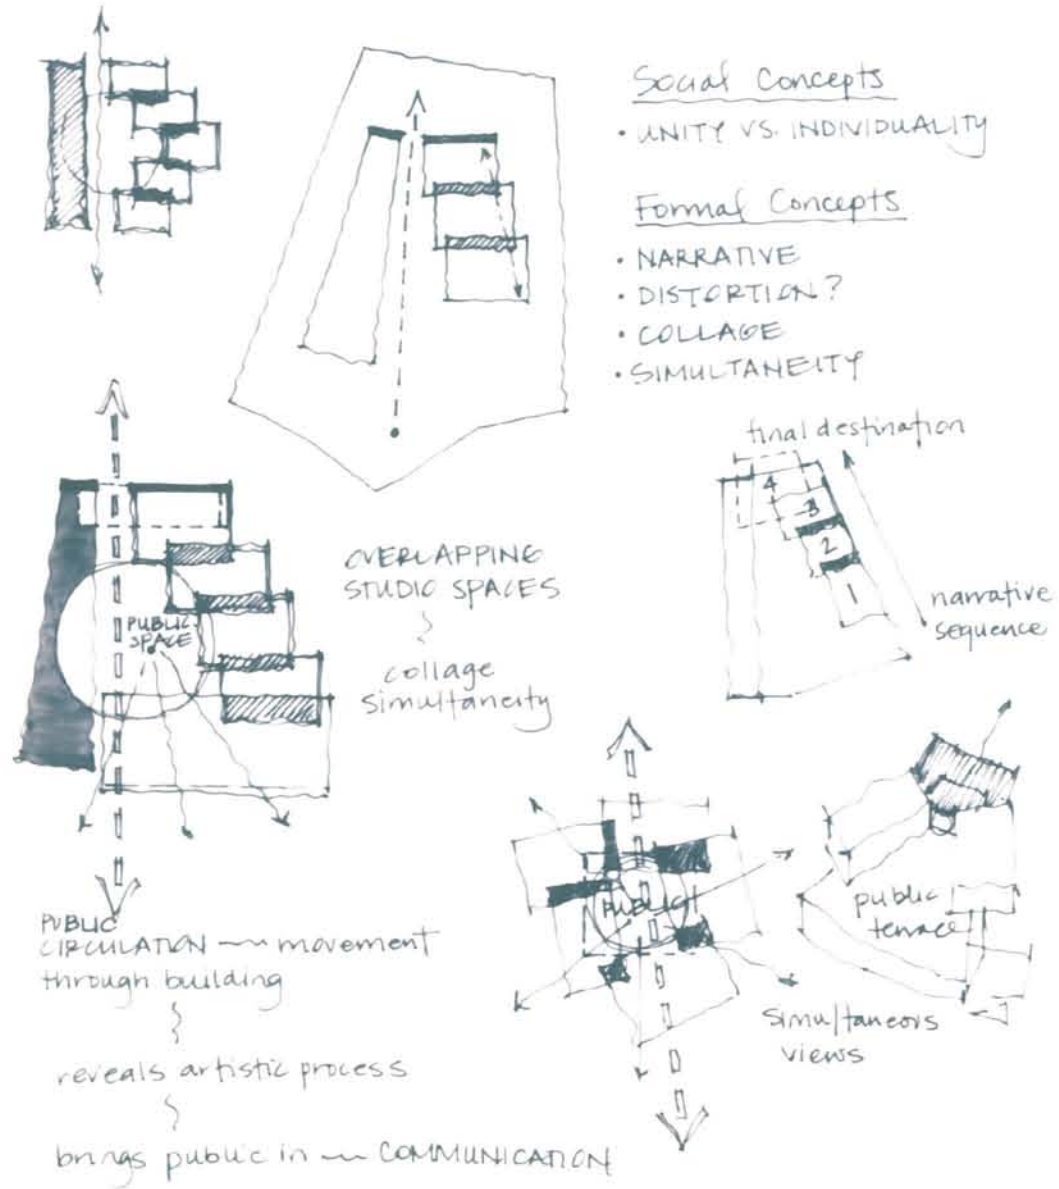 Social Concepts
• UNITY VS. INDIVIDUALITY
Formal Concepts
• NARRATIVE
• DISTORTION?
• COLLAGE
• SIMULTANEITY
final destination
4
3
2
1
narrative
sequence
OVERLAPPING
STUDIO SPACES
collage
simultaneity
PUBLIC
SPACE
PUBLIC
CIRCULATION — movement
through building
reveals artistic process
brings public in — COMMUNICATION
PUBLIC
public
terrace
simultaneous
views